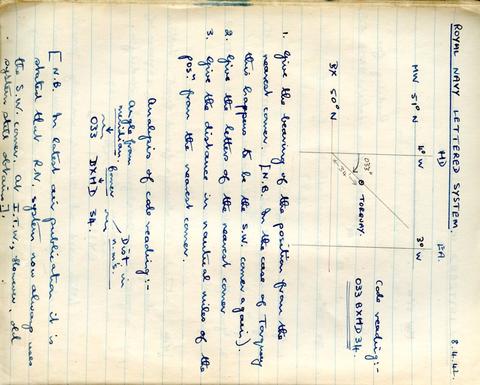 ROYAL NAVY LETTERED SYSTEM.
8.4.42.
HD
EA.
4°W
3°W
MW 51°N
033°
34
TORQUAY.
BX 50°N
Code reading:-
033 BXHD 34.
1. Give the bearing of the position from the
nearest corner. [N.B. In the case of Torquay
this happens to be the S.W. corner again).
2. Give the letters of the nearest corner
3. Give the distance in nautical miles of the
posⁿ from the nearest corner.
Analysis of code reading:-
Angle from
meridian
Corner
Dist in
n.ms.
033 BXHD 34.
[N.B. In latest air publication it is
stated that R.N. system now always uses
the S.W. corner. At I.T.W., however, old
system still obtains].